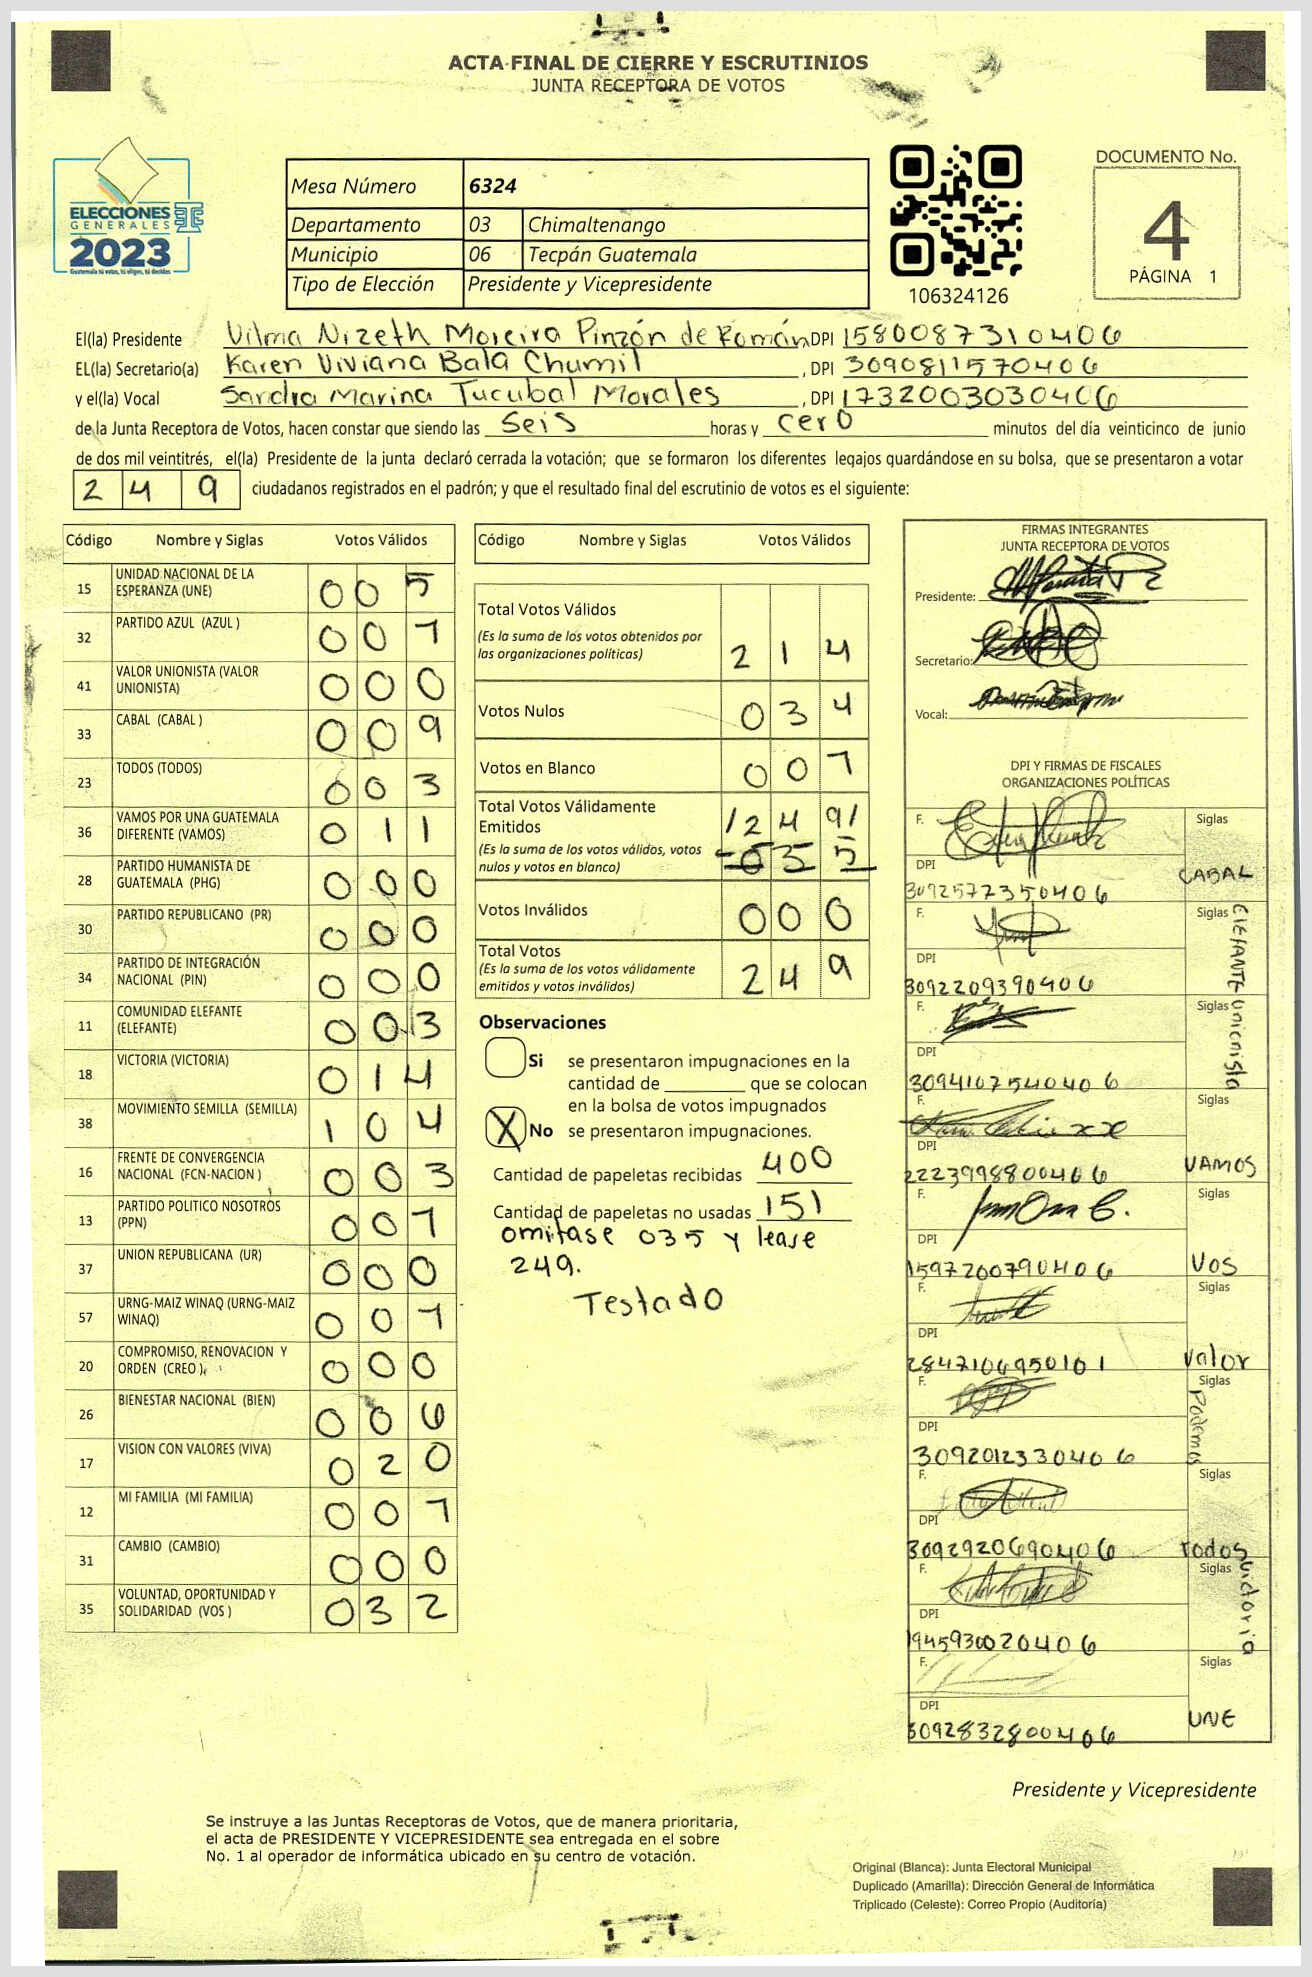 ACTA FINAL DE CIERRE Y ESCRUTINIOS
JUNTA RECEPTORA DE VOTOS
ELECCIONES
GENERALES
2023
Guatemala tú votas, tú eliges, tú decides
Mesa Número 6324
Departamento 03 Chimaltenango
Municipio 06 Tecpán Guatemala
Tipo de Elección Presidente y Vicepresidente
106324126
DOCUMENTO No.
4
PÁGINA 1
El(la) Presidente Vilma Nizeth Moreira Pinzón de Román DPI 1580087310406
EL(la) Secretario(a) Karen Viviana Bala Chumil , DPI 3090811570406
y el(la) Vocal Sandra Marina Tucubal Morales , DPI 1732003030406
de la Junta Receptora de Votos, hacen constar que siendo las seis horas y cero minutos del día veinticinco de junio
de dos mil veintitrés, el(la) Presidente de la junta declaró cerrada la votación; que se formaron los diferentes legajos guardándose en su bolsa, que se presentaron a votar
2 4 9 ciudadanos registrados en el padrón; y que el resultado final del escrutinio de votos es el siguiente:
Código Nombre y Siglas Votos Válidos
15 UNIDAD NACIONAL DE LA ESPERANZA (UNE) 0 0 5
32 PARTIDO AZUL (AZUL ) 0 0 7
41 VALOR UNIONISTA (VALOR UNIONISTA) 0 0 0
33 CABAL (CABAL ) 0 0 9
23 TODOS (TODOS) 0 0 3
36 VAMOS POR UNA GUATEMALA DIFERENTE (VAMOS) 0 1 1
28 PARTIDO HUMANISTA DE GUATEMALA (PHG) 0 0 0
30 PARTIDO REPUBLICANO (PR) 0 0 0
34 PARTIDO DE INTEGRACIÓN NACIONAL (PIN) 0 0 0
11 COMUNIDAD ELEFANTE (ELEFANTE) 0 0 3
18 VICTORIA (VICTORIA) 0 1 4
38 MOVIMIENTO SEMILLA (SEMILLA) 1 0 4
16 FRENTE DE CONVERGENCIA NACIONAL (FCN-NACION ) 0 0 3
13 PARTIDO POLITICO NOSOTROS (PPN) 0 0 7
37 UNION REPUBLICANA (UR) 0 0 0
57 URNG-MAIZ WINAQ (URNG-MAIZ WINAQ) 0 0 7
20 COMPROMISO, RENOVACION Y ORDEN (CREO ) 0 0 0
26 BIENESTAR NACIONAL (BIEN) 0 0 6
17 VISION CON VALORES (VIVA) 0 2 0
12 MI FAMILIA (MI FAMILIA) 0 0 7
31 CAMBIO (CAMBIO) 0 0 0
35 VOLUNTAD, OPORTUNIDAD Y SOLIDARIDAD (VOS ) 0 3 2
Código Nombre y Siglas Votos Válidos
Total Votos Válidos
(Es la suma de los votos obtenidos por
las organizaciones políticas) 2 1 4
Votos Nulos 0 3 4
Votos en Blanco 0 0 7
Total Votos Válidamente
Emitidos / 2 4 9 /
(Es la suma de los votos válidos, votos
nulos y votos en blanco) 0 3 5
Votos Inválidos 0 0 0
Total Votos
(Es la suma de los votos válidamente
emitidos y votos inválidos) 2 4 9
Observaciones
Si se presentaron impugnaciones en la
cantidad de ________ que se colocan
en la bolsa de votos impugnados
X No se presentaron impugnaciones.
Cantidad de papeletas recibidas 400
Cantidad de papeletas no usadas 151
omitase 035 y lease
249.
Testado
FIRMAS INTEGRANTES
JUNTA RECEPTORA DE VOTOS
Presidente:
Secretario:
Vocal:
DPI Y FIRMAS DE FISCALES
ORGANIZACIONES POLÍTICAS
F. Siglas
DPI
3092572350406 CABAL
F. Siglas
DPI
3092209390406 Elefante
F. Siglas
DPI
3094107540406 unionista
F. Siglas
DPI
2223998800406 VAMOS
F. Siglas
DPI
1597200790406 VOS
F. Siglas
DPI
2847106950101 Valor
F. Siglas
DPI
3092012330406 Podemos
F. Siglas
DPI
3092920690406 Todos
F. Siglas
DPI
1945930020406 victoria
F. Siglas
DPI
3092832800406 UNE
Presidente y Vicepresidente
Se instruye a las Juntas Receptoras de Votos, que de manera prioritaria,
el acta de PRESIDENTE Y VICEPRESIDENTE sea entregada en el sobre
No. 1 al operador de informática ubicado en su centro de votación.
Original (Blanca): Junta Electoral Municipal
Duplicado (Amarilla): Dirección General de Informática
Triplicado (Celeste): Correo Propio (Auditoría)